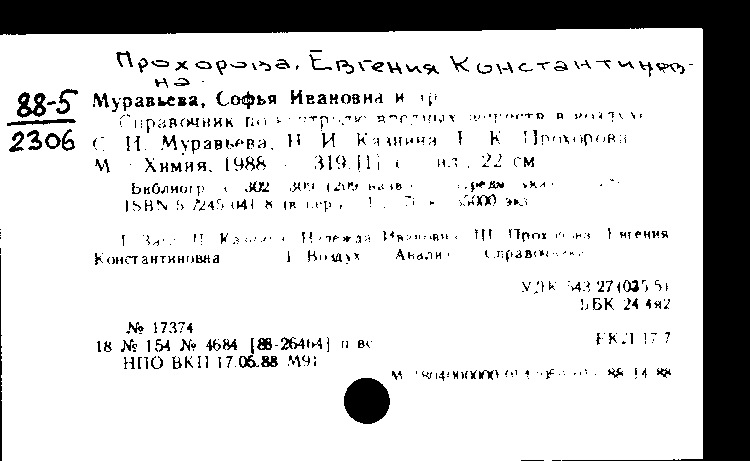 Прохорова, Евгения Константинов-
на.
88-5
2306
Муравьева, Софья Ивановна и др
Справочник по контролю вредных веществ в воздухе
С. И. Муравьева, Н. И. Казнина, Е. К. Прохорова
М Химия, 1988 319,[1] с ил., 22 см
Библиогр с 302 309 (209 назв
ISBN 5 7245 041 8 (в пер 35000 экз
I Загл II Казнина Надежда Ивановна III Прохорова Евгения
Константиновна 1 Воздух Анализ Справочники
УДК 543 27(035 5)
ББК 24 4я2
№ 17374
18 № 154 № 4684 [88-26464] п вс
НПО ВКП 17.05.88 М91
ЕКЛ 17 7
М 1804000000 88 14 88